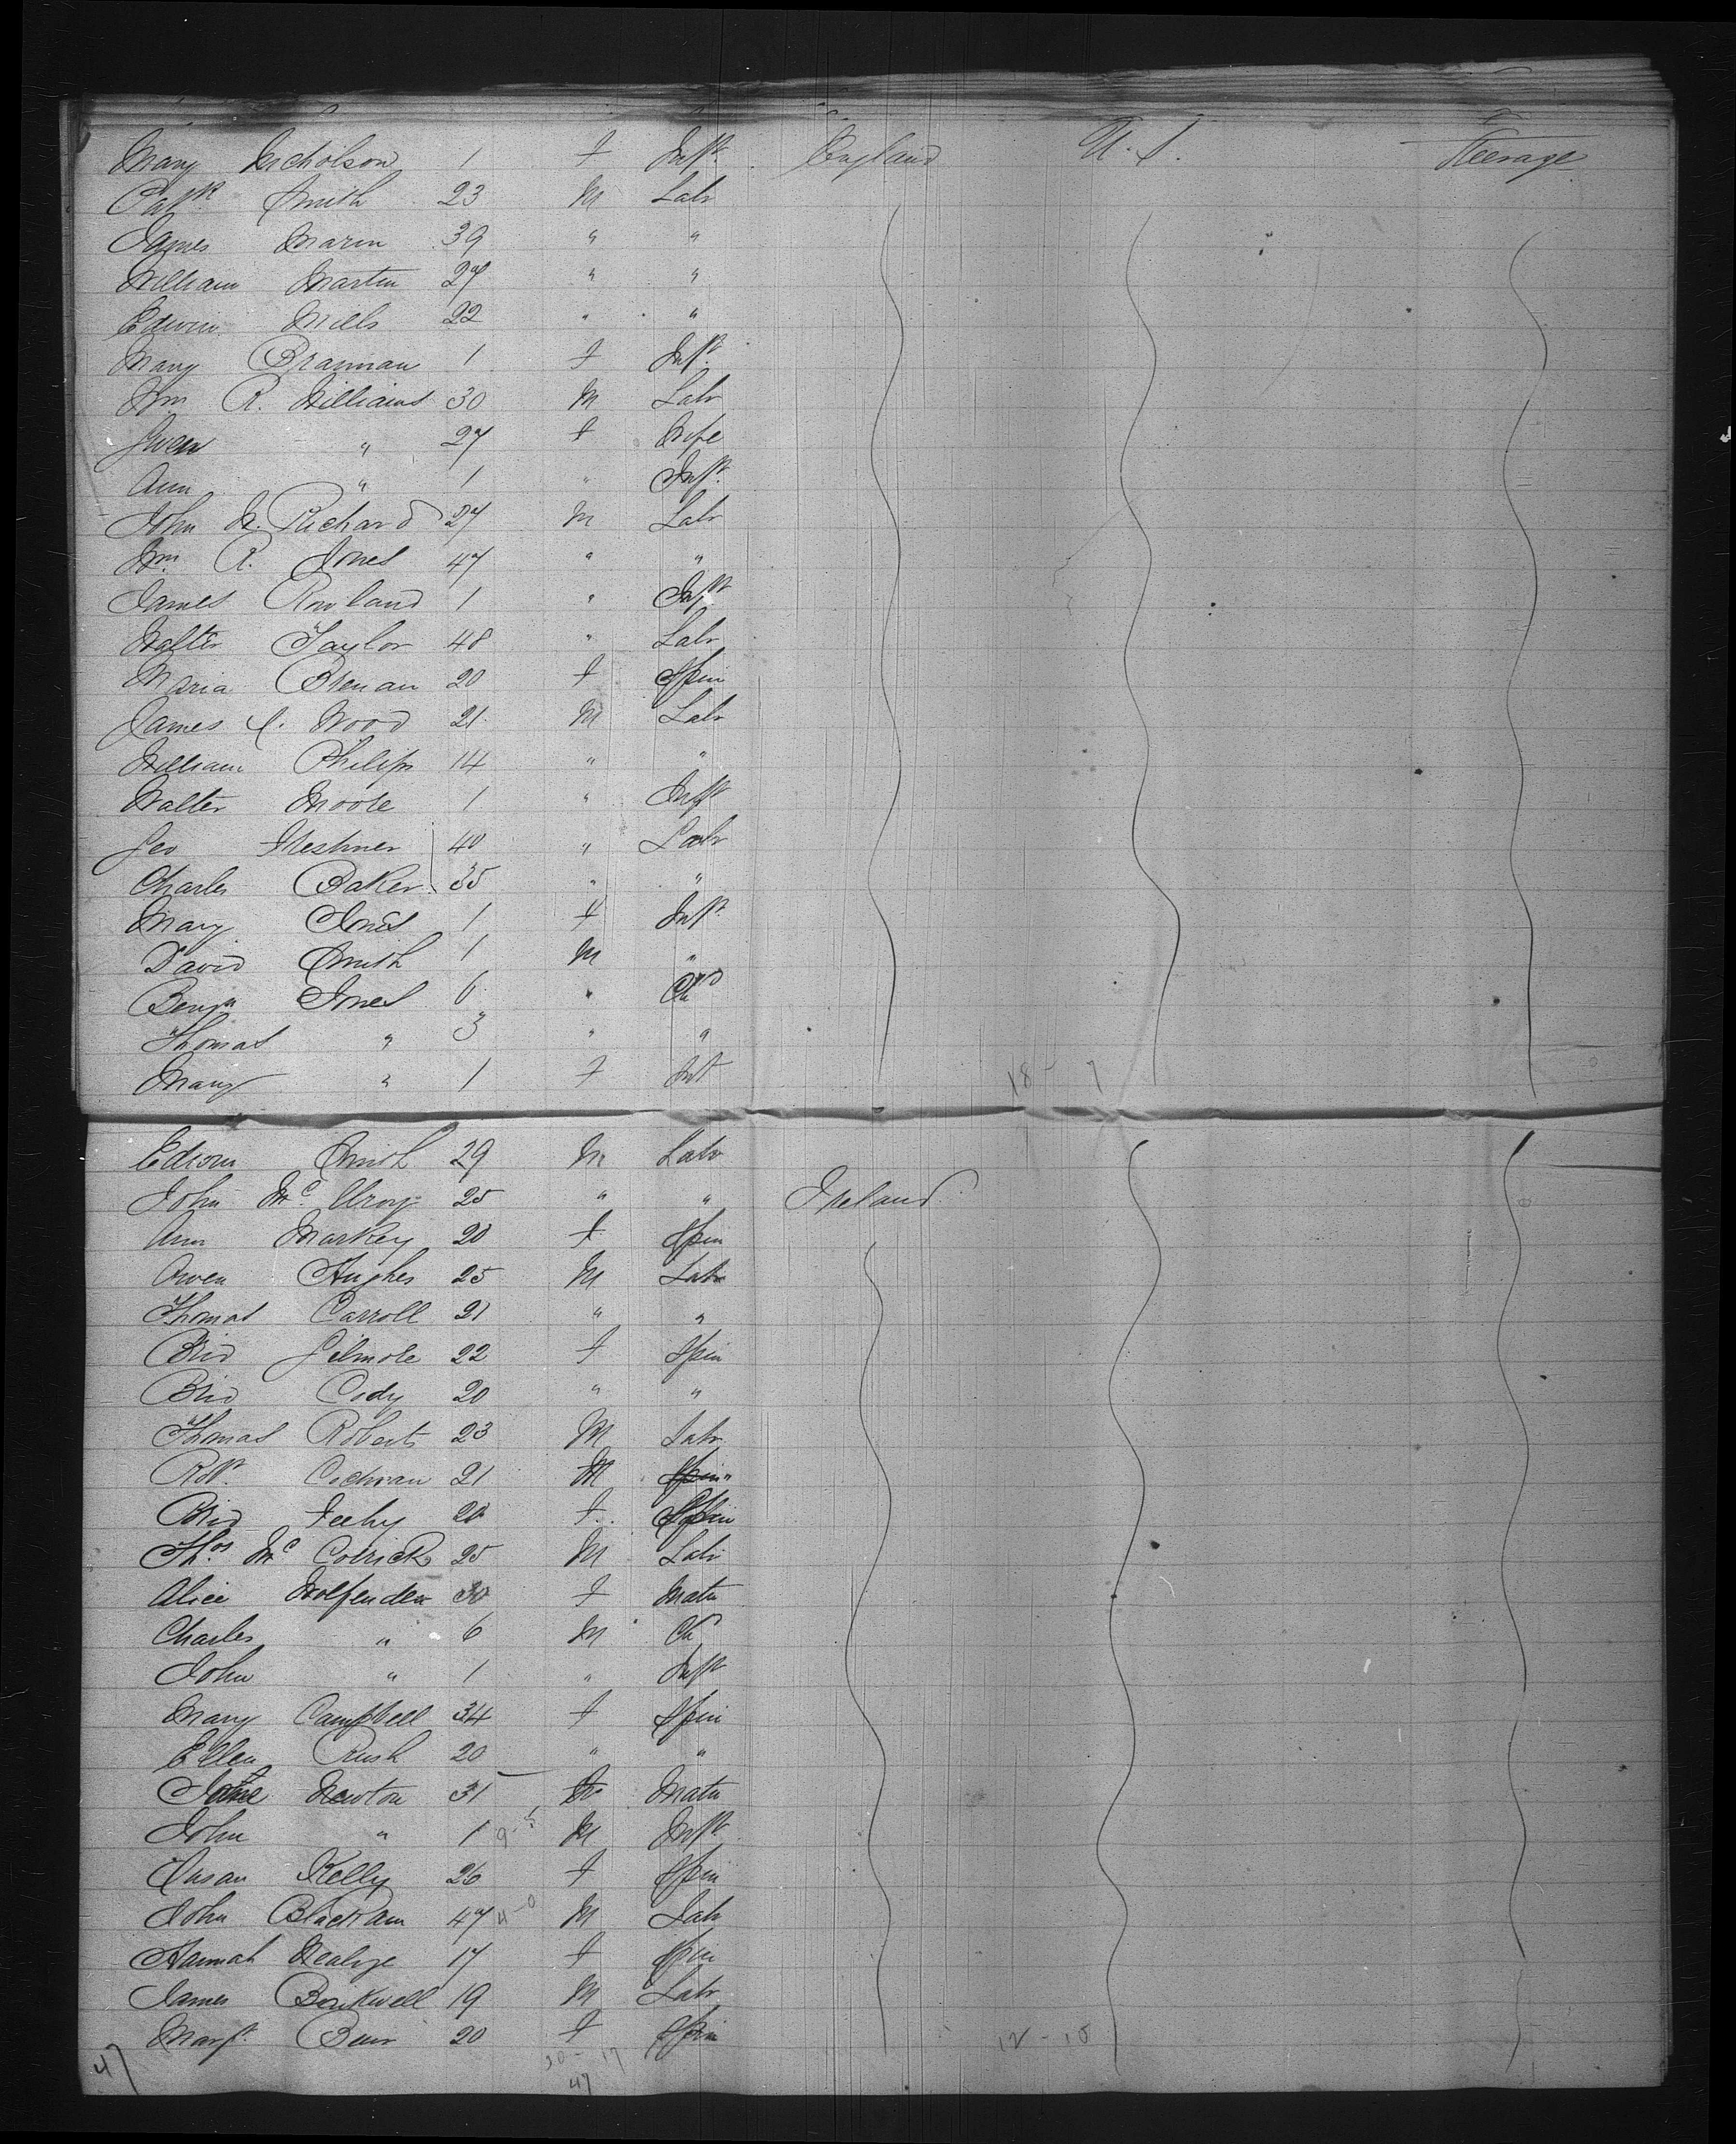 Mary Nicholson 1 F Inft England U.S. Steerage
Patk Smith 23 M Labr
James Marin 39 " "
William Martin 27 " "
Edwin Mills 22 " "
Mary Brannan 1 F Inft
Wm R. Williams 30 M Labr
Gwen " 27 F Wife
Ann " 1 " Inft
John W. Richard 27 M Labr
Wm R. Jones 47 " "
James Rowland 1 " Inft
Walter Taylor 48 " Labr
Maria Brenan 20 F Spin
James C. Wood 21 M Labr
William Philips 14 " "
Walter Moore 1 " Inft
Geo 40 " Labr
Charles Baker 35 " "
Mary Jones 1 F Inft
David Smith 1 M "
Benjn Jones 6 " Chd
Thomas " 3 " "
Mary " 1 F Inft
18 - 7
Edwin Smith 29 M Labr
John McIlroy 25 " " Ireland
Ann Markey 20 F Spin
Owen Hughes 25 M Labr
Thomas Carroll 21 " "
Brid Gilmore 22 F Spin
Brid Cody 20 " "
Thomas Roberts 23 M Labr
Robt Cochran 21 M Spin "
Brid Feehy 20 F Spin
Thos Mc Cotrick 25 M Labr
Alice Wolfenden 30 F Matn
Charles " 6 M Chd
John " 1 " Inft
Mary Campbell 34 F Spin
Ellen Rush 20 " "
Jane Newton 31 Matn
John " 1 M Inft
Susan Kelly 26 F Spin
John Blackam 47 M Labr
Hannah 17 F Spin
James 19 M Labr
Margt 20 F Spin
12 - 10
47
30 - 17
47